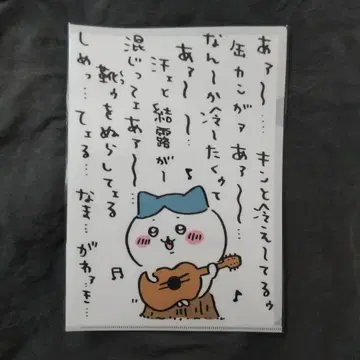 あァ〜… キンと冷えしてるゥ
缶カンがァ あァ〜…
なん〜か冷〜たくゥて
あァ〜 〜…
汗ェと結露が〜
混じってェあァ〜…
靴ゥをぬらしてェる
くつ
しめっ… てェる… なま… がわァき…